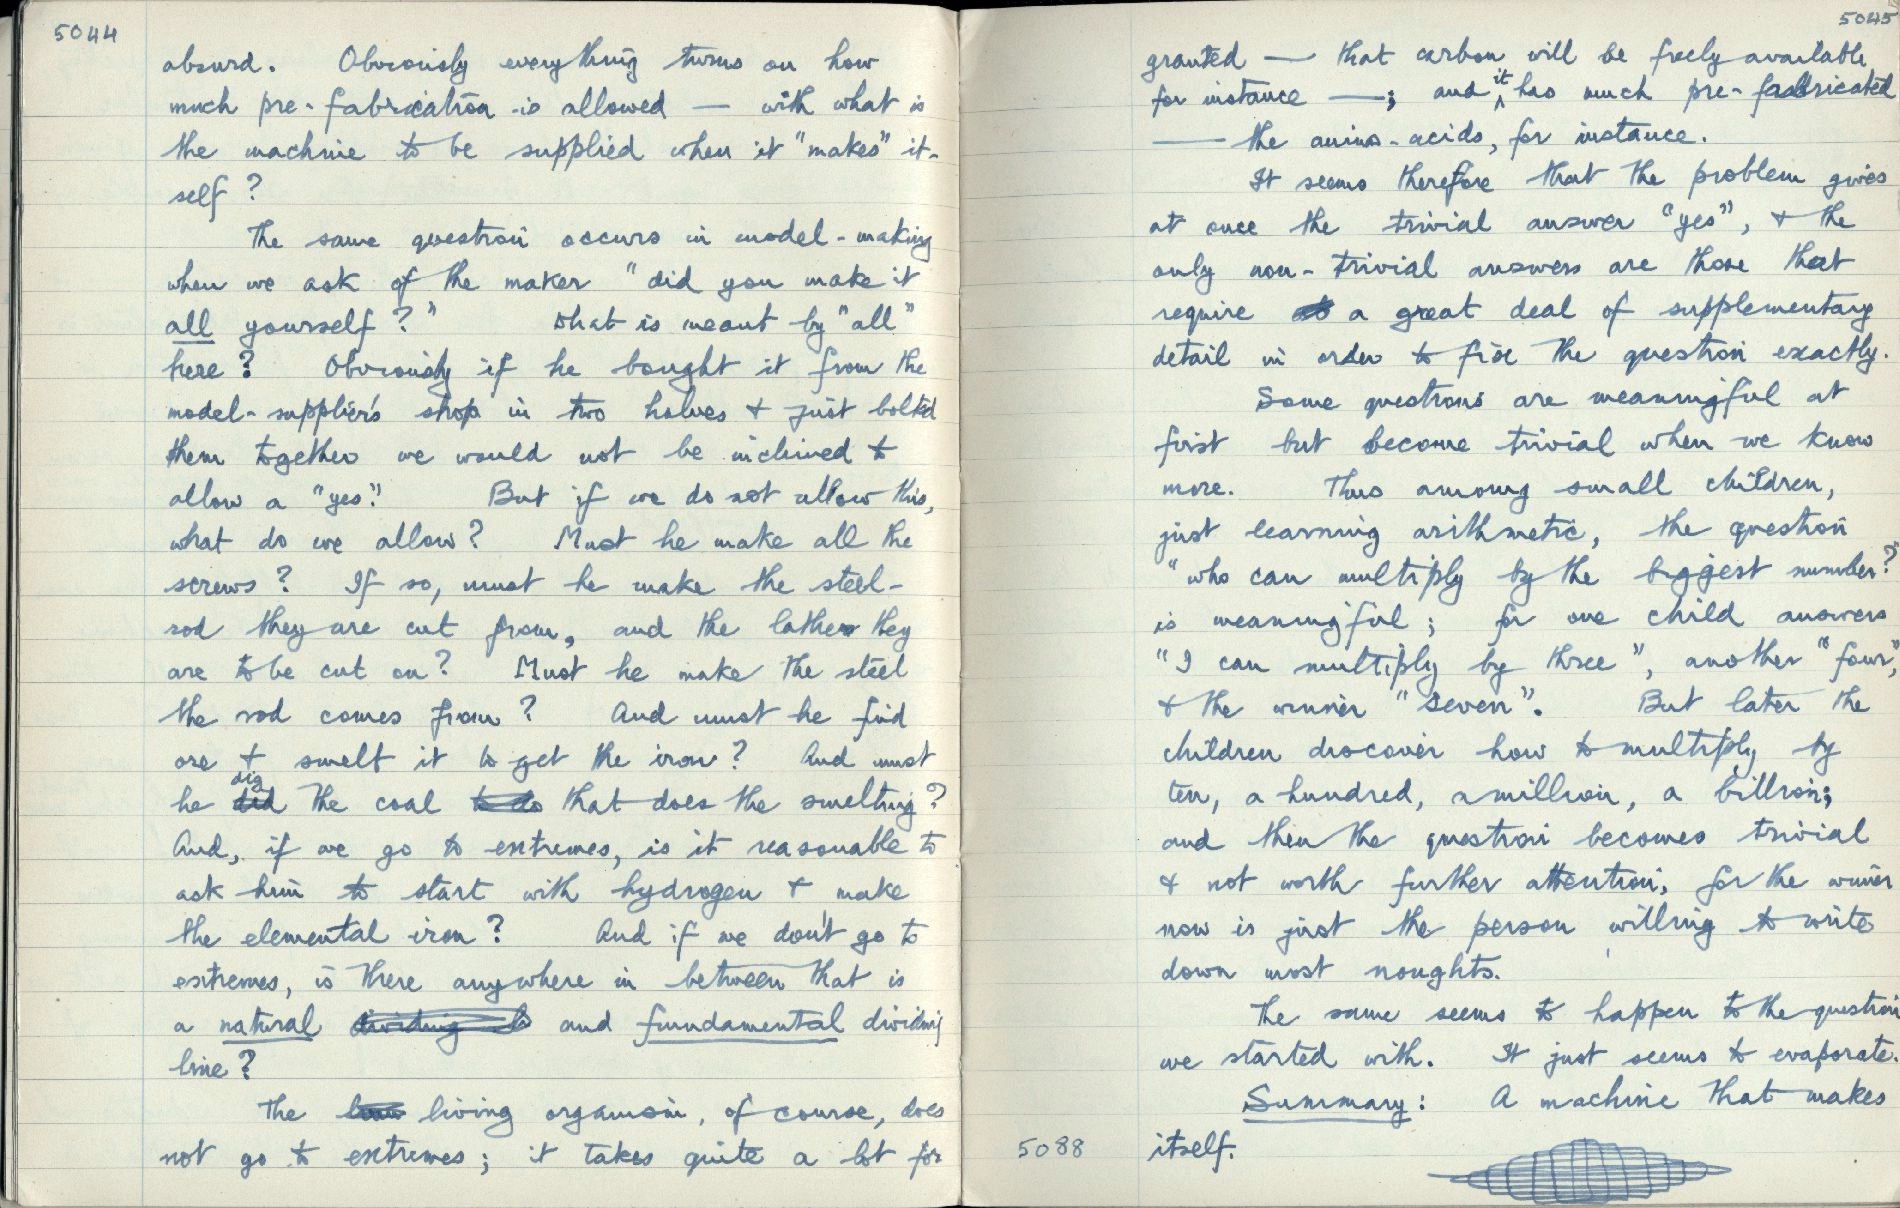 5044
absurd. Obviously everything turns on how
much pre-fabrication is allowed — with what is
the machine to be supplied when it "makes" it-
self?
The same question occurs in model-making
when we ask of the maker "did you make it
all yourself?" What is meant by "all"
here? Obviously if he bought it from the
model-supplier's shop in two halves & just bolted
them together we would not be inclined to
allow a "yes". But if we do not allow this,
what do we allow? Must he make all the
screws? If so, must he make the steel-
rod they are cut from, and the lathe they
are to be cut on? Must he make the steel
the rod comes from? And must he find
ore & smelt it to get the iron? And must
he dig the coal that does the smelting?
And, if we go to extremes, is it reasonable to
ask him to start with hydrogen & make
the elemental iron? And if we don't go to
extremes, is there anywhere in between that is
a natural and fundamental dividing
line?
The living organism, of course, does
not go to extremes; it takes quite a lot for
5045
granted — that carbon will be freely available
for instance —; and it has much pre-fabricated
— the amino-acids, for instance.
It seems therefore that the problem gives
at once the trivial answer "yes", & the
only non-trivial answers are those that
require a great deal of supplementary
detail in order to fix the question exactly.
Some questions are meaningful at
first but become trivial when we know
more. Thus among small children,
just learning arithmetic, the question
"who can multiply by the biggest number?"
is meaningful; for one child answers
"I can multiply by three", another "four",
& the winner "seven". But later the
children discover how to multiply by
ten, a hundred, a million, a billion;
and then the question becomes trivial
& not worth further attention, for the winner
now is just the person willing to write
down most noughts.
The same seems to happen to the question
we started with. It just seems to evaporate.
Summary: A machine that makes
5088 itself.